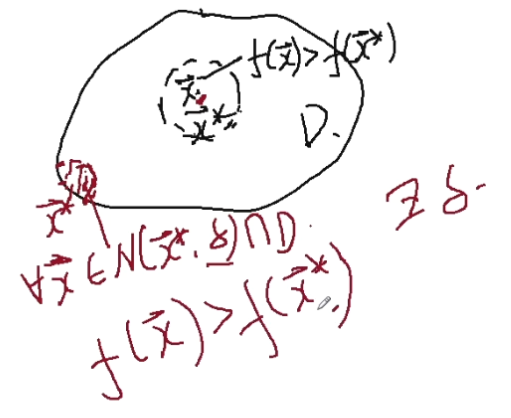 f(x⃗)>f(x⃗*)
x⃗
x⃗*
D.
x⃗*
∃ δ.
∀x⃗∈N(x⃗*,δ)∩D.
f(x⃗)>f(x⃗*)